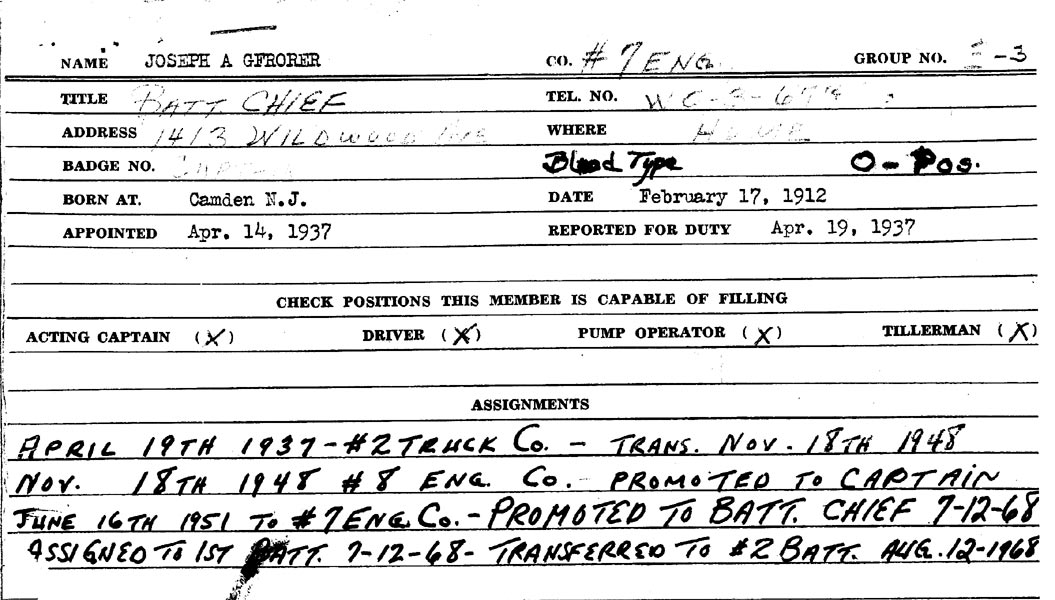 NAME JOSEPH A GFRORER CO. # 7 ENG. GROUP NO. -3
TITLE BATT CHIEF TEL. NO. WO-3-
ADDRESS 1413 WILDWOOD AVE WHERE HOME
BADGE NO. Blood Type O - Pos.
BORN AT. Camden N.J. DATE February 17, 1912
APPOINTED Apr. 14, 1937 REPORTED FOR DUTY Apr. 19, 1937
CHECK POSITIONS THIS MEMBER IS CAPABLE OF FILLING
ACTING CAPTAIN (X) DRIVER (X) PUMP OPERATOR (X) TILLERMAN (X)
ASSIGNMENTS
APRIL 19TH 1937 - #2 TRUCK Co. - TRANS. NOV. 18TH 1948
NOV. 18TH 1948 #8 ENG. Co. - PROMOTED TO CAPTAIN
JUNE 16TH 1951 TO #7 ENG. Co. - PROMOTED TO BATT. CHIEF 7-12-68
ASSIGNED TO 1ST BATT. 7-12-68 - TRANSFERRED TO #2 BATT. AUG. 12-1968